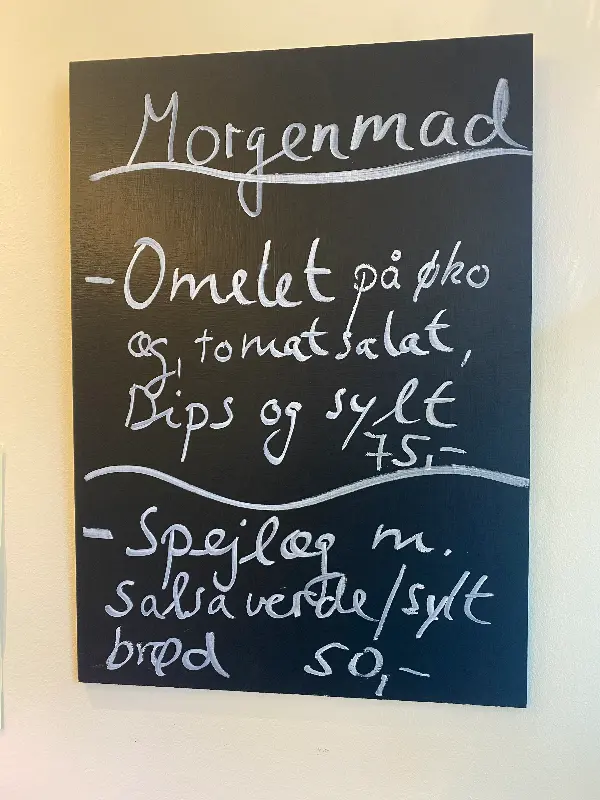 Morgenmad
- Omelet på øko
æg, tomatsalat,
Dips og sylt
75,-
- Spejlæg m.
salsa verde/sylt
brød 50,-